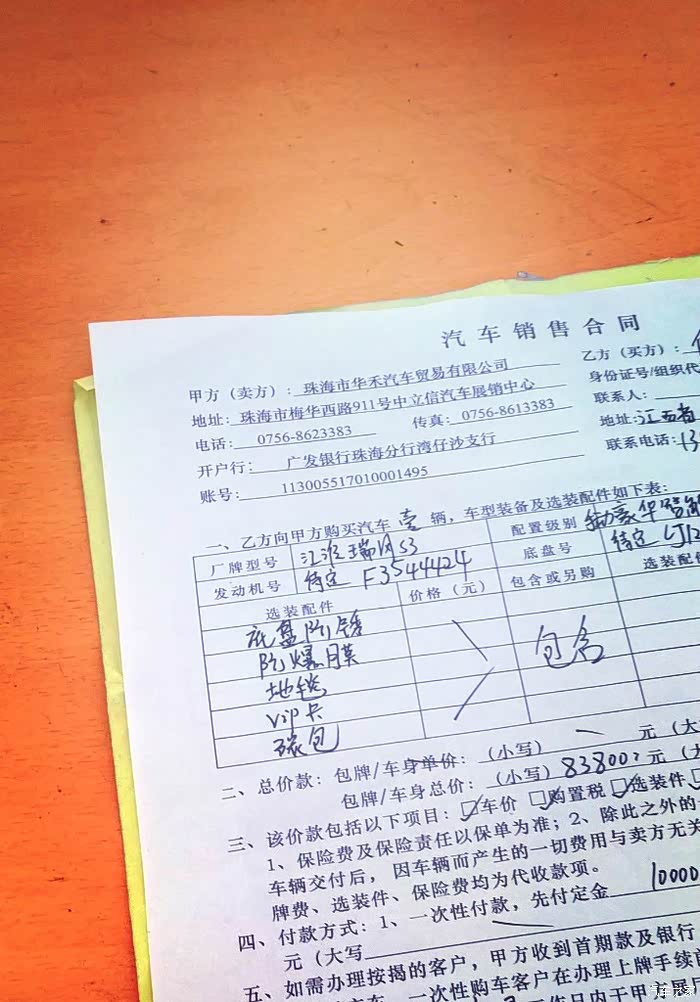 汽车销售合同
甲方（卖方）：珠海市华禾汽车贸易有限公司
乙方（买方）：
地址：珠海市梅华西路911号中立信汽车展销中心
身份证号/组织代
电话：0756-8623383 传真：0756-8613383
联系人：
开户行：广发银行珠海分行湾仔沙支行
地址：江西省
账号：113005517010001495
联系电话：13
一、乙方向甲方购买汽车壹辆，车型装备及选装配件如下表：
厂牌型号 江淮瑞风S3 配置级别 豪华智能
发动机号 待定 F3544424 底盘号 待定 LJ12
选装配件 价格（元） 包含或另购 选装配件
底盘防锈
防爆膜 包含
地毯
VIP卡
二、总价款：包牌/车身单价：（小写） 元（大
包牌/车身总价：（小写）83800 元（大
三、该价款包括以下项目：☑车价 ☑购置税 ☑选装件
1、保险费及保险责任以保单为准；2、除此之外的
车辆交付后，因车辆而产生的一切费用与卖方无关
牌费、选装件、保险费均为代收款项。
四、付款方式：1、一次性付款，先付定金 10000
元（大写
五、如需办理按揭的客户，甲方收到首期款及银行
一次性购车客户在办理上牌手续前